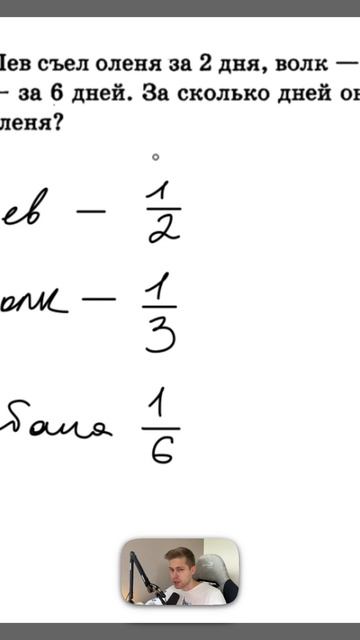 Лев съел оленя за 2 дня, волк —
– за 6 дней. За сколько дней он
леня?
ев — 1/2
олк — 1/3
бака 1/6